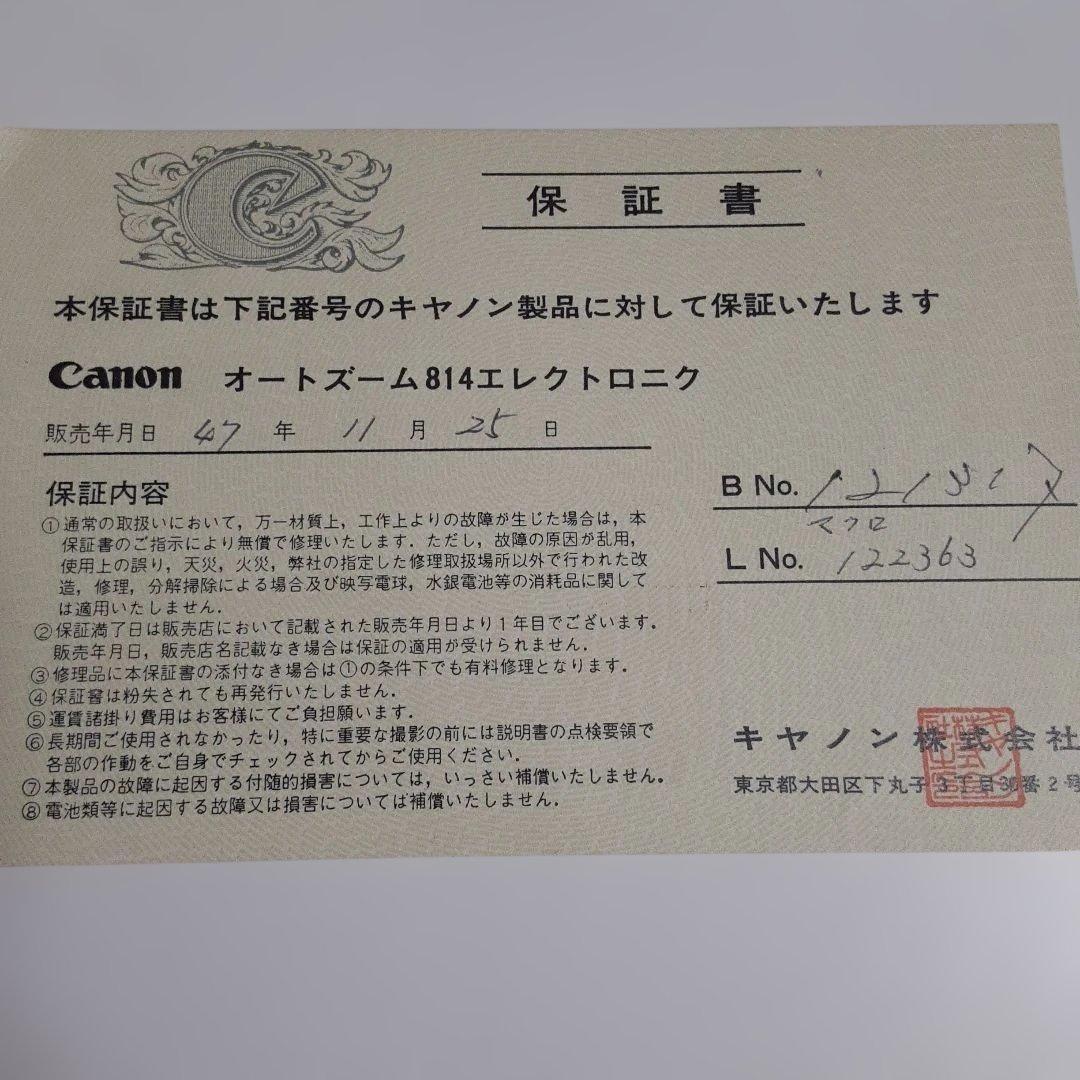 保証書
本保証書は下記番号のキヤノン製品に対して保証いたします
Canon オートズーム814エレクトロニク
販売年月日 47 年 11 月 25 日
B No.
マクロ
L No. 122363
保証内容
①通常の取扱いにおいて，万一材質上，工作上よりの故障が生じた場合は，本
保証書のご指示により無償で修理いたします．ただし，故障の原因が乱用，
使用上の誤り，天災，火災，弊社の指定した修理取扱場所以外で行われた改
造，修理，分解掃除による場合及び映写電球，水銀電池等の消耗品に関して
は適用いたしません．
②保証満了日は販売店において記載された販売年月日より１年目でございます．
販売年月日，販売店名記載なき場合は保証の適用が受けられません．
③修理品に本保証書の添付なき場合は①の条件下でも有料修理となります．
④保証書は紛失されても再発行いたしません．
⑤運賃諸掛り費用はお客様にてご負担願います．
⑥長期間ご使用されなかったり，特に重要な撮影の前には説明書の点検要領で
各部の作動をご自身でチェックされてからご使用ください．
⑦本製品の故障に起因する付随的損害については，いっさい補償いたしません．
⑧電池類等に起因する故障又は損害については補償いたしません．
キヤノン株式会社
東京都大田区下丸子3丁目30番2号